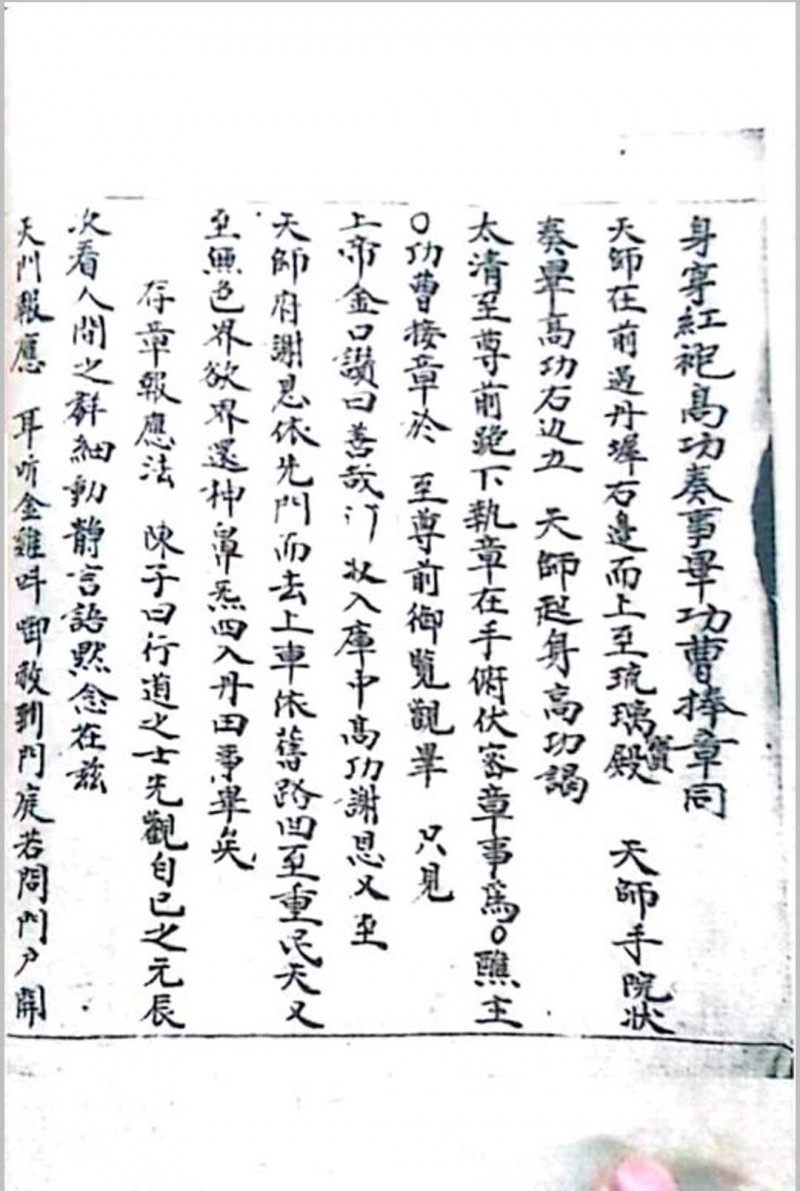 身穿紅袍高功奏事畢功曹捧章同
天師在前過丹墀右邊而上至琉璃寳殿 天師手院狀
奏畢高功右边立 天師起身高功謁
太清至尊前跪下執章在手俯伏審章事為〇醮主
〇功曹接章於 至尊前御覽觀畢 只見
上帝金口讚曰善哉〻收入庫中高功謝恩又至
天師府謝恩依先門而去上車依舊路回至重民天又
至無色界欲界還神鼻炁四入丹田事畢矣
存章報應法 陳子曰行道之士先觀自己之元辰
次看人間之群細動静言語黙念在兹
天門報應 耳听金雞呌啣赦到門庭若問門户開